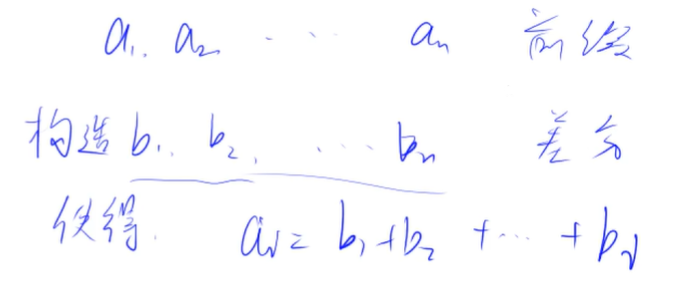 a₁, a₂ ... aₙ 前缀
构造 b₁, b₂, ... bₙ 差分
使得. aᵢ = b₁ + b₂ + ... + bᵢ